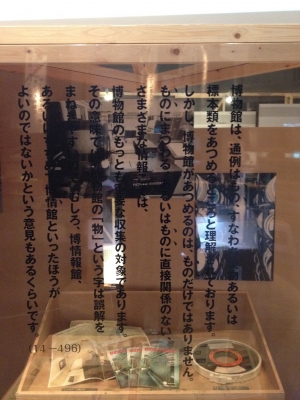 博物館は、通例はもの、すなわち
あるいは
標本類をあつめ
ると理解
ております。
しかし、博物館があつめるのは、ものだけではありません。
ものにまつわる、
るいはものに直接関係のない、
さまざまな情報
は、
博物館のもっとも
な収集の対象であります。
その意味で
物館の「物」という字は誤解を
まね
むしろ、博情報館、
あるいは
情館といったほうが
よいのではないかという意見もあるくらいです。
(14-496)